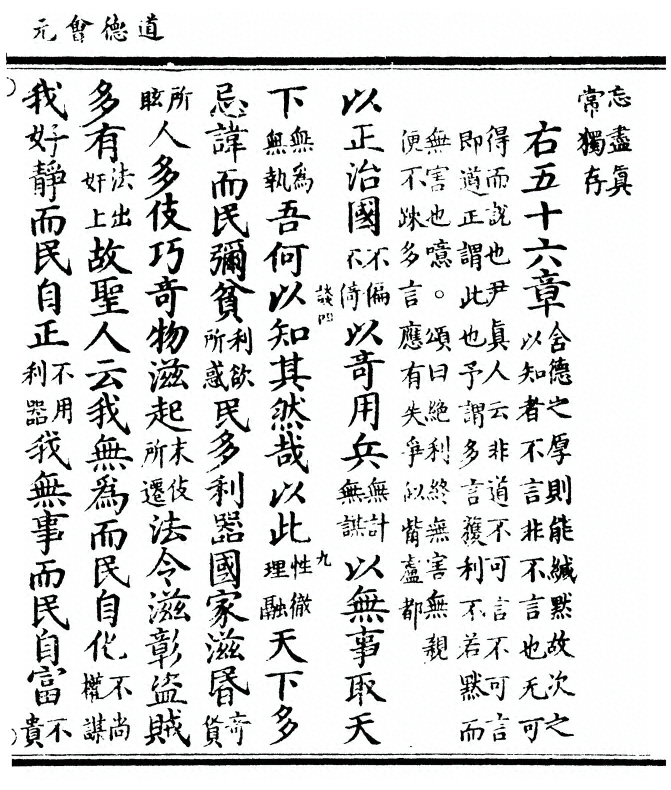 道德會元
忘盡眞
常獨存
右五十六章舍德之厚則能緘默故次之
以知者不言非不言也无可
得而說也尹眞人云非道不可言不可言
即道正謂此也予謂多言獲利不若默而
無害也噫。頌曰絕利終無害無親
便不踈多言應有失爭似觜盧都
以正治國不偏不倚以奇用兵無計無謀以無事取天
談四
九
下無為無執吾何以知其然哉以此性徹理融天下多
忌諱而民彌貧利欲所惑民多利器國家滋昬奇貨
所眩人多伎巧奇物滋起末伎所遷法令滋彰盜賊
多有法出奸上故聖人云我無爲而民自化不尚權謀
我好靜而民自正不用利器我無事而民自富不貴